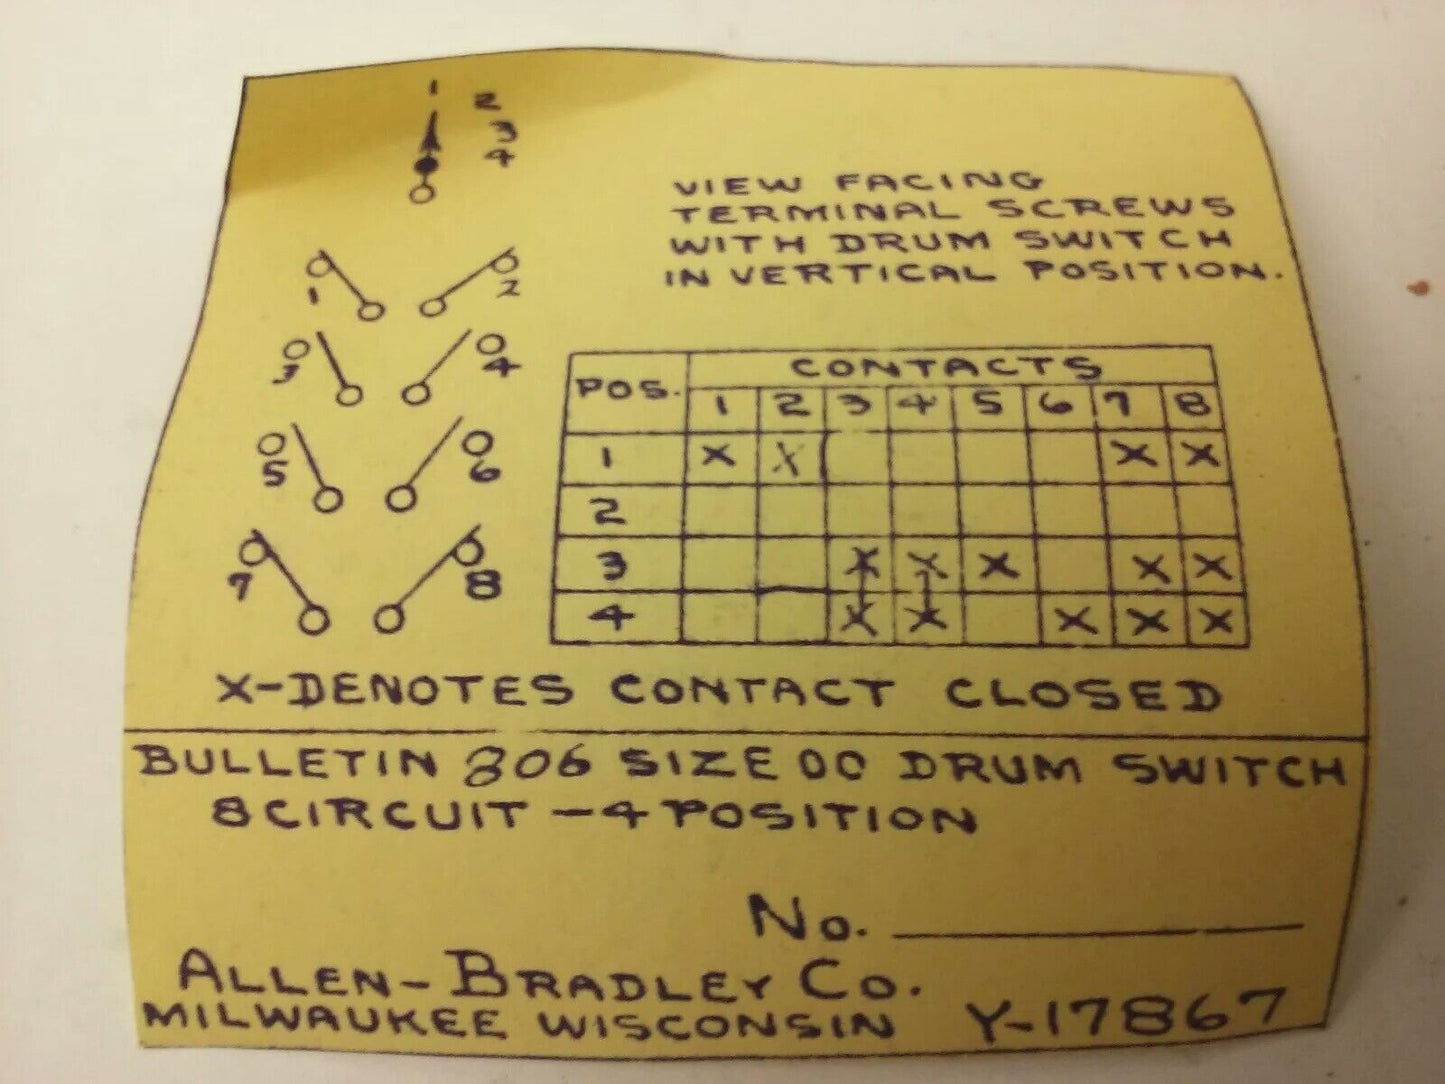 1 2
3
4
VIEW FACING
TERMINAL SCREWS
WITH DRUM SWITCH
IN VERTICAL POSITION.
1 2
3 4
5 6
7 8
POS. CONTACTS
1 2 3 4 5 6 7 8
1 X X X X
2
3 X X X X X
4 X X X X X
X-DENOTES CONTACT CLOSED
BULLETIN 806 SIZE 00 DRUM SWITCH
8 CIRCUIT - 4 POSITION
No.
ALLEN-BRADLEY CO.
MILWAUKEE WISCONSIN Y-17867